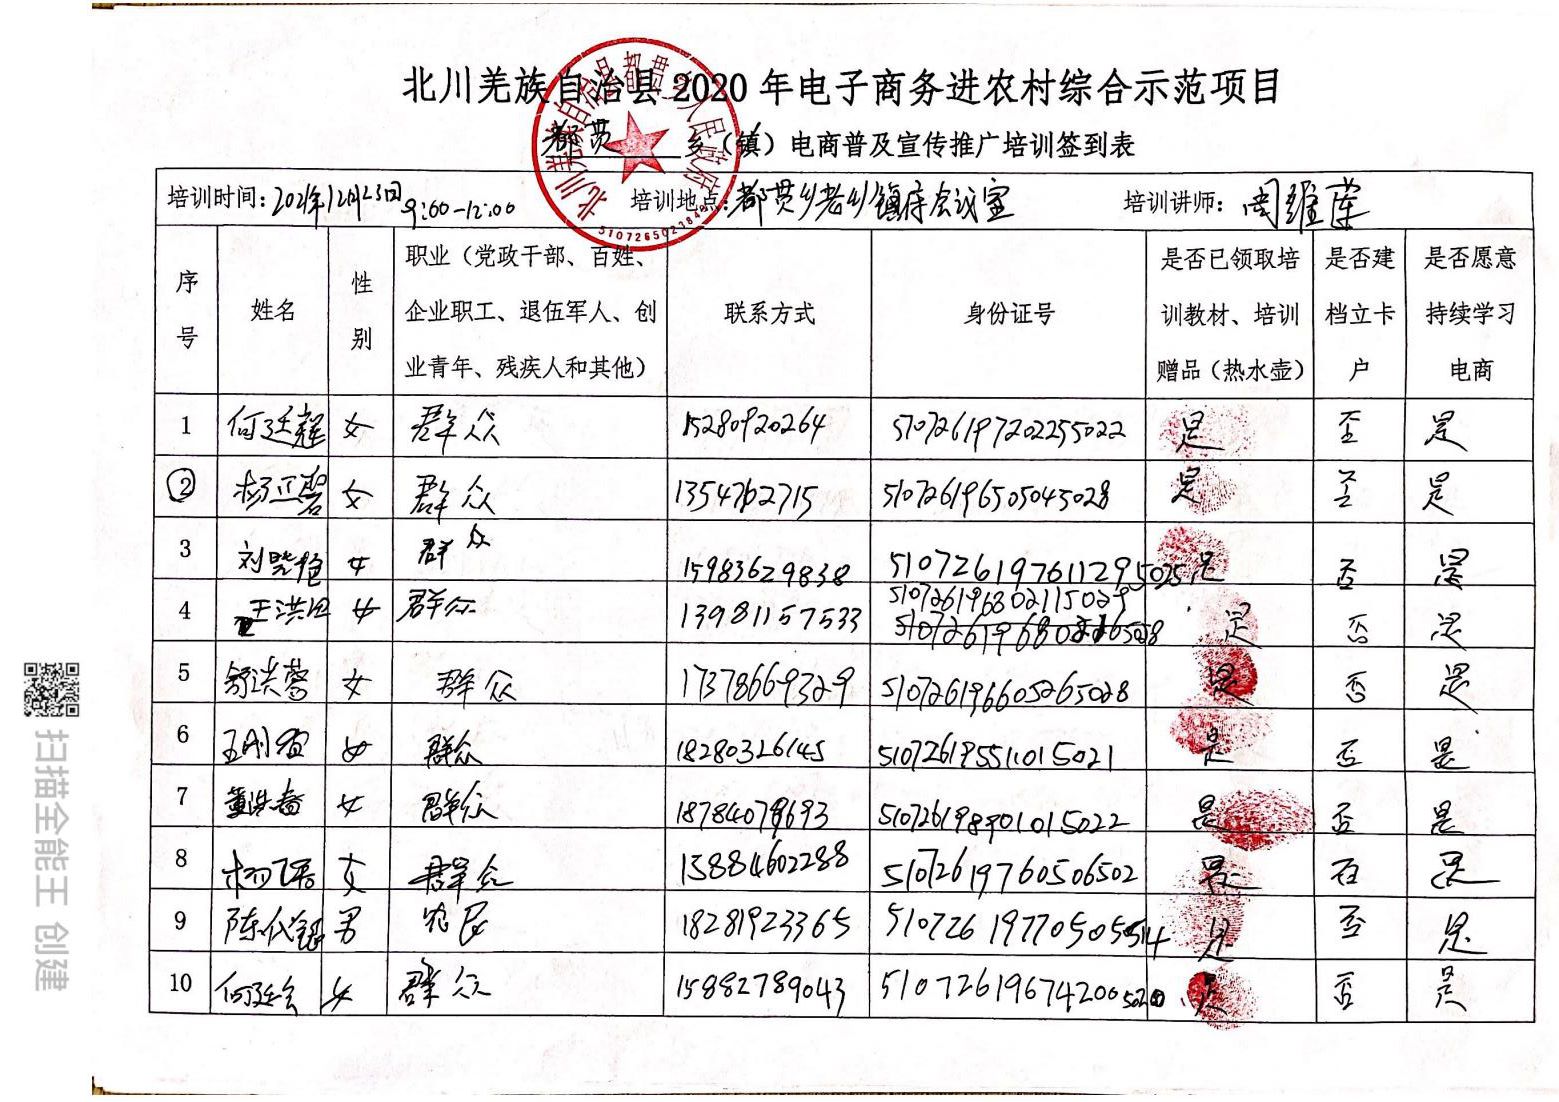 北川羌族自治县 2020 年电子商务进农村综合示范项目
都贯 乡（镇）电商普及宣传推广培训签到表
北川羌族自治县都贯乡人民政府
培训时间：2021年12月23日 9:00-12:00 培训地点：都贯乡老乡镇府会议室 培训讲师：周维莲
序号 姓名 性别 职业（党政干部、百姓、企业职工、退伍军人、创业青年、残疾人和其他） 联系方式 身份证号 是否已领取培训教材、培训赠品（热水壶） 是否建档立卡户 是否愿意持续学习电商
1 何廷辉 女 群众 15280920264 510726197202255022 是 否 是
2 杨正碧 女 群众 1354762715 510726196505045028 是 否 是
3 女 群众 15983629838 510726197611295025 是 否 是
4 女 群众 13981157533 510726196802115029 是 否 是
5 舒洪蓉 女 群众 17378669329 510726196605265028 是 否 是
6 女 群众 18280326145 510726195511015021 是 否 是
7 董洪春 女 群众 18784079693 510726198901015022 是 否 是
8 女 群众 15884602288 51072619760506502 是 否 是
9 陈代银 男 农民 18281923365 510726197705055514 是 否 是
10 何廷会 女 群众 15882789043 是 否 是
扫描全能王 创建